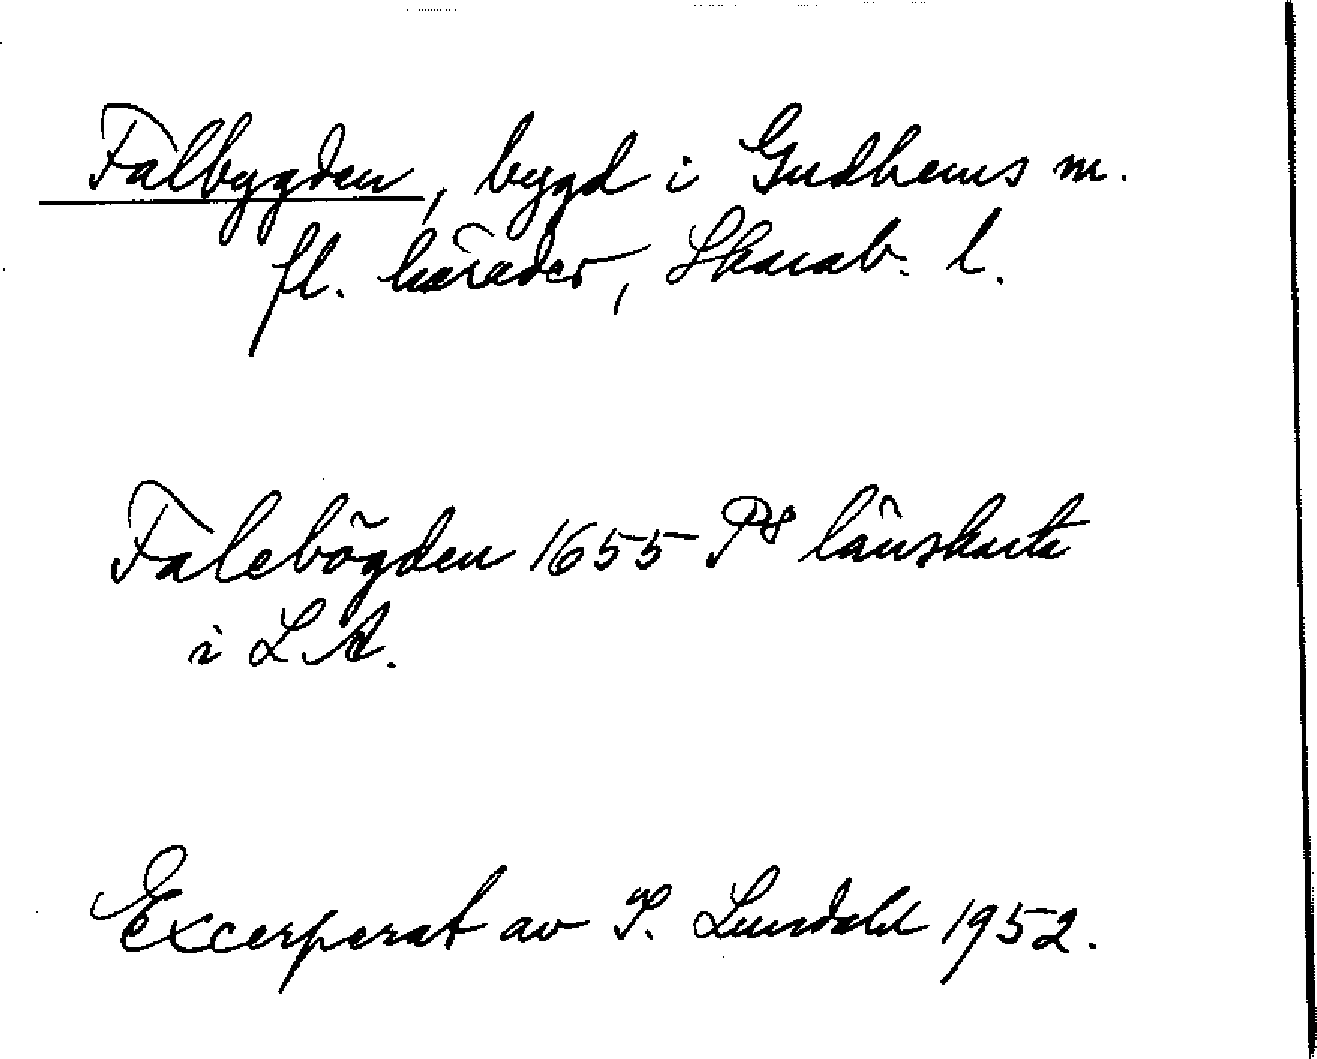 Falbygden, bygd i Gudhems m.
fl. härader, Skarab. l.
Falebögden 1655 P8 länskarta
i LA.
Excerperat av I. Lundahl 1952.